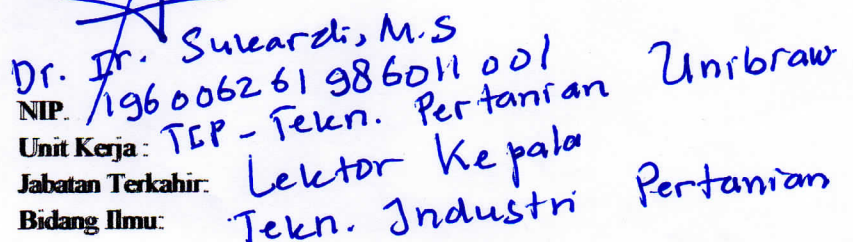 Dr. Ir. Sukardi, M.S
NIP. 196006261986011001
Unit Kerja : TEP - Tekn. Pertanian Unibraw
Jabatan Terkahir: Lektor Kepala
Bidang Ilmu: Tekn. Industri Pertanian